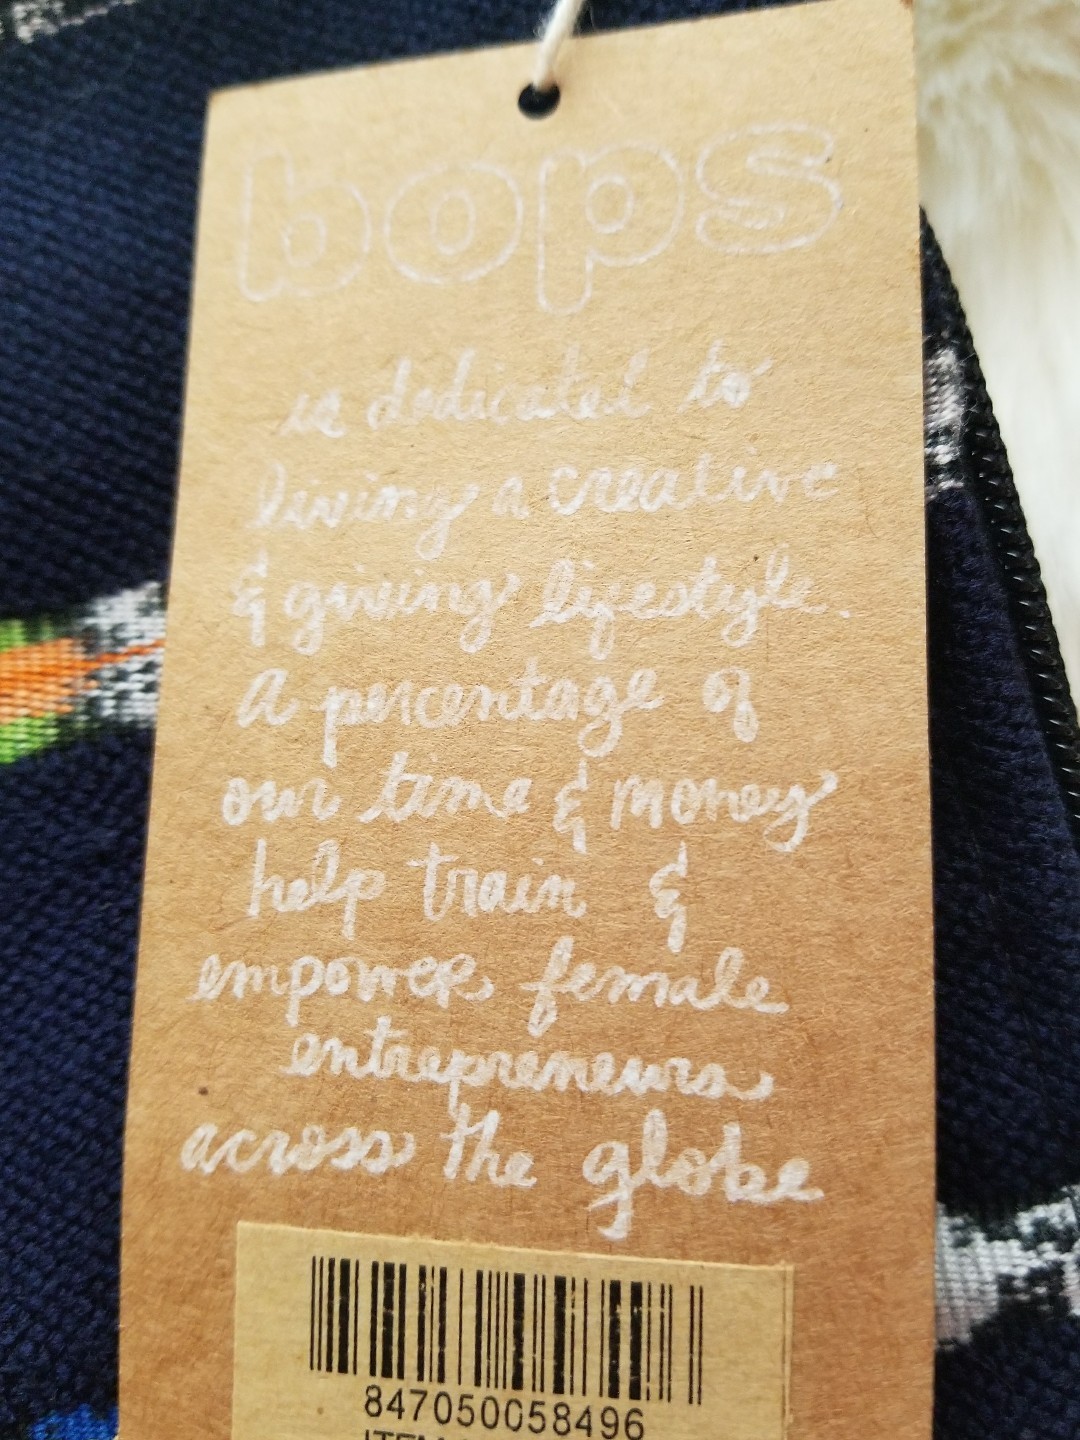 bops
is dedicated to
living a creative
& giving lifestyle.
A percentage of
our time & money
help train &
empower female
entrepreneurs
across the globe
847050058496